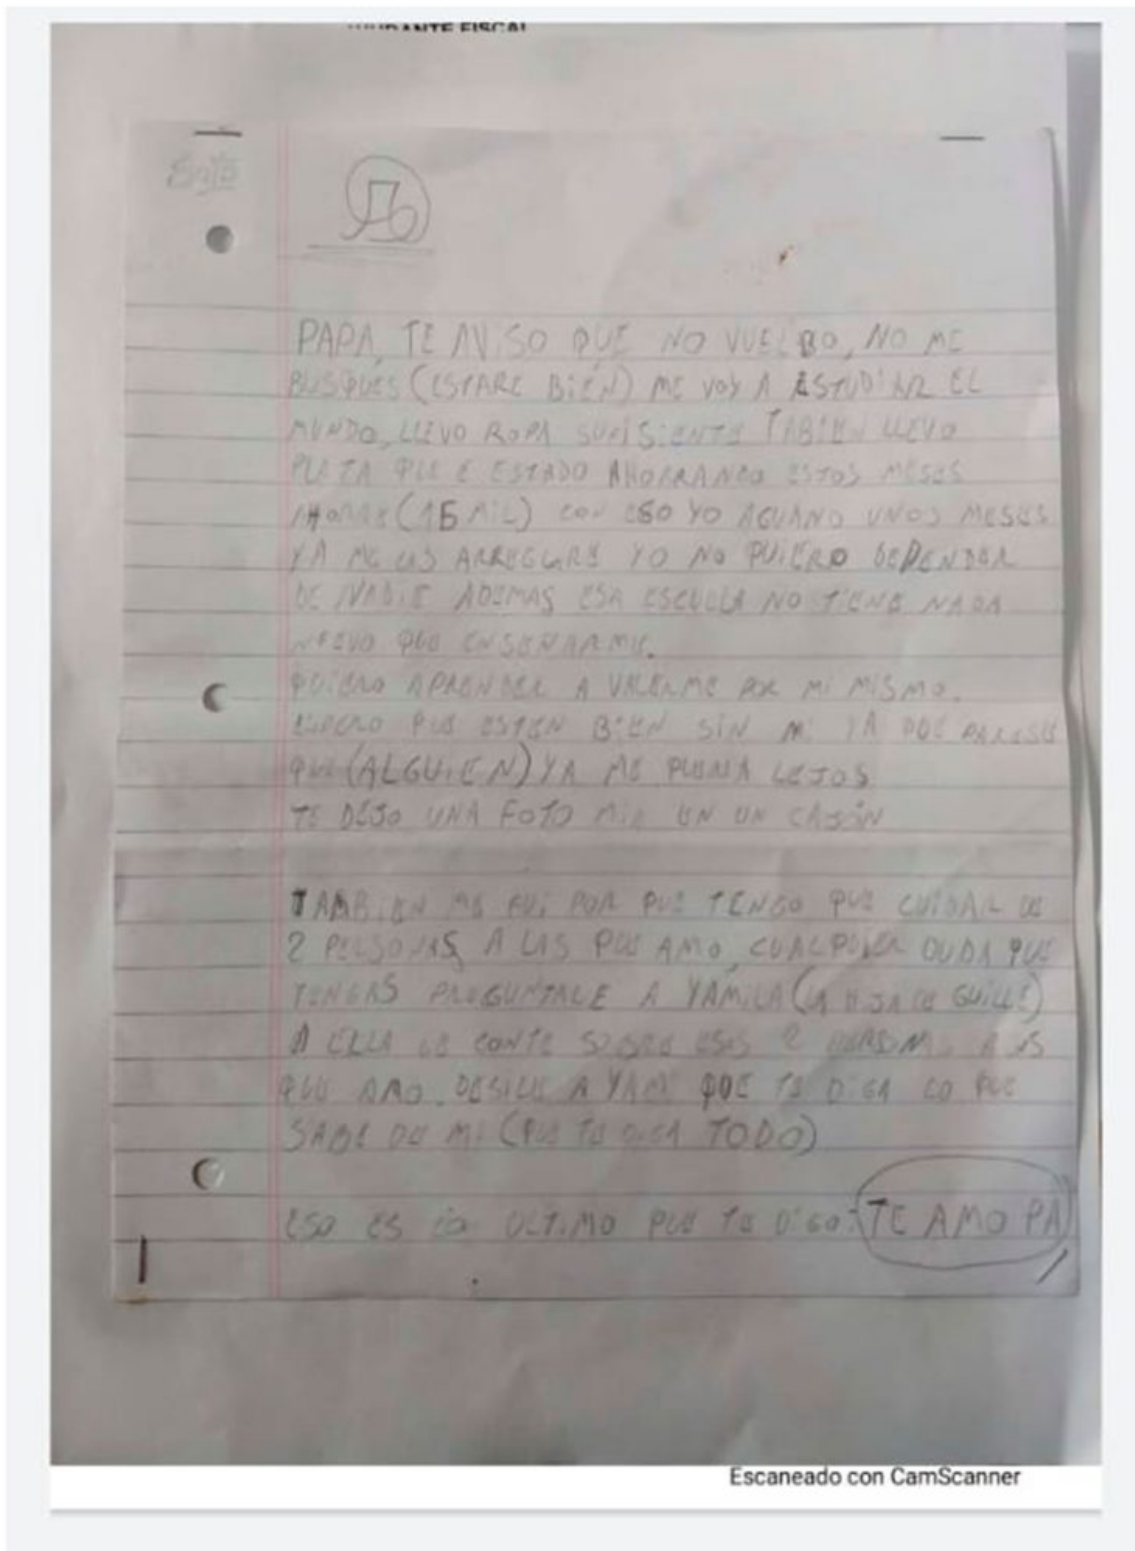 AYUDANTE FISCAL
PAPA, TE AVISO QUE NO VUELBO, NO ME
BUSQUES (ESTARE BIEN) ME VOY A ESTUDIAR EL
MUNDO, LLEVO ROPA SUFISIENTE TABIEN LLEVO
PLATA QUE E ESTADO AHORRANDO ESTOS MESES
AHORRE (15 MIL) CON ESO YO AGUANO UNOS MESES
YA ME LAS ARREGLARE YO NO QUIERO DEPENDER
DE NADIE ADEMAS ESA ESCUELA NO TIENE NADA
NUEVO QUE ENSEÑARME.
QUIERO APRENDER A VALERME POR MI MISMO.
ESPERO QUE ESTEN BIEN SIN MI YA QUE PARESE
QUE (ALGUIEN) YA ME QUERIA LEJOS
TE DEJO UNA FOTO MIA EN UN CAJÓN
TAMBIEN ME FUI POR QUE TENGO QUE CUIDAR DE
2 PERSONAS A LAS QUE AMO, CUALQUIER DUDA QUE
TENGAS PREGUNTALE A YAMILA (LA HIJA DE GUILLE)
A ELLA LE CONTE SOBRE ESAS 2 PERSONAS A LAS
QUE AMO. DESILE A YAMI QUE TE DIGA LO QUE
SABE DE MI (QUE TE DIGA TODO)
ESO ES LO ULTIMO QUE TE DIGO: TE AMO PA
Escaneado con CamScanner